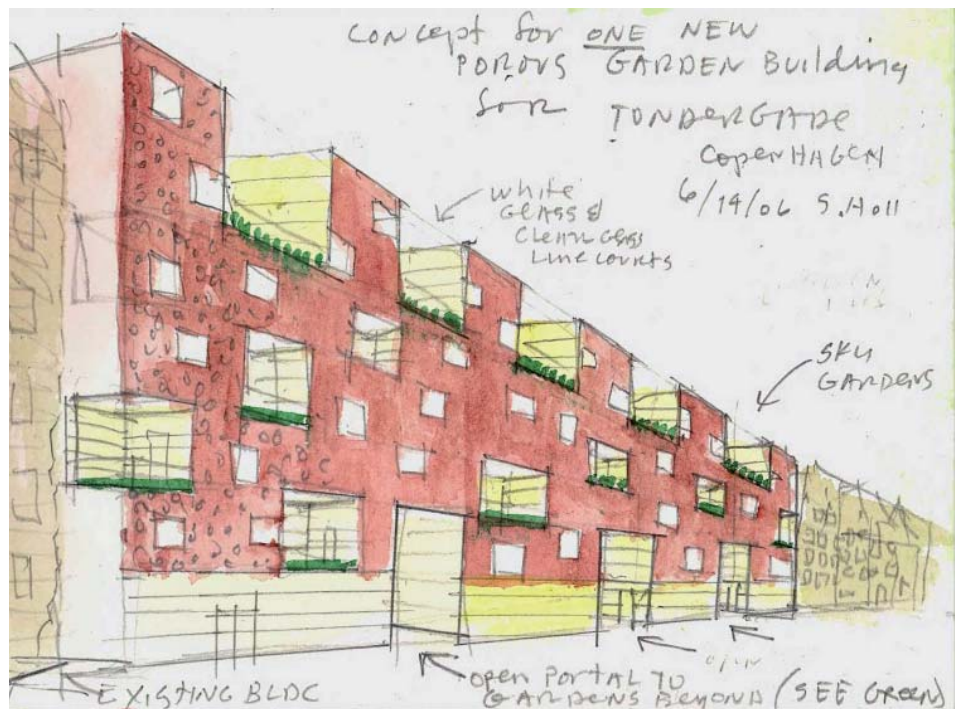 CONCEPT for ONE NEW
POROUS GARDEN Building
for TONDERGADE
COPENHAGEN
6/14/06 S. Holl
white
GLASS &
CLEAR GLASS
LINE COURTS
SKY
GARDENS
EXISTING BLDG
open PORTAL TO
GARDENS BEYOND (SEE GREEN)
open